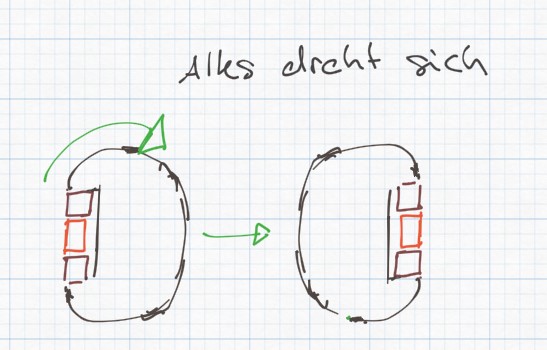 Alles dreht sich